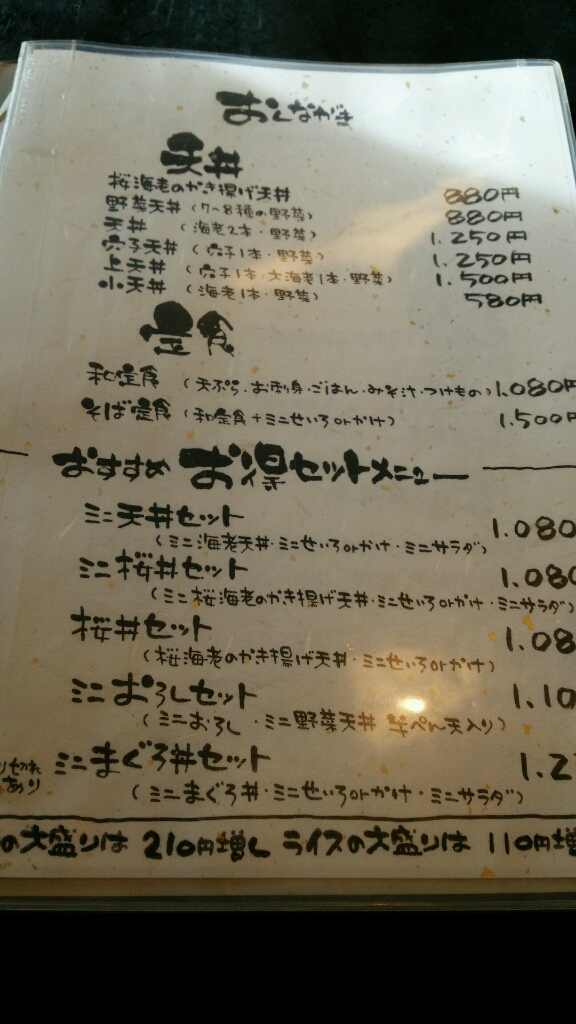 おしながき
天丼
桜海老のかき揚げ天丼 880円
野菜天丼 (7~8種の野菜) 880円
天丼 (海老2本・野菜) 1.250円
穴子天丼 (穴子1本・野菜) 1.250円
上天丼 (穴子1本・大海老1本・野菜) 1.500円
小天丼 (海老1本・野菜) 580円
定食
和定食 (天ぷら・お刺身・ごはん・みそ汁・つけもの) 1.080円
そば定食 (和定食+ミニせいろorかけ) 1.500円
おすすめ お得セットメニュー
ミニ天丼セット 1.080
(ミニ海老天丼・ミニせいろorかけ・ミニサラダ)
ミニ桜丼セット 1.080
(ミニ桜海老のかき揚げ天丼・ミニせいろorかけ・ミニサラダ)
桜丼セット 1.08
(桜海老のかき揚げ天丼・ミニせいろorかけ)
ミニおろしセット 1.10
(ミニおろし・ミニ野菜天丼 半ぺん天入り)
ミニまぐろ丼セット 1.2
り切れ
あり
(ミニまぐろ丼・ミニせいろorかけ・ミニサラダ)
の大盛りは 210円増し ライスの大盛りは 110円増